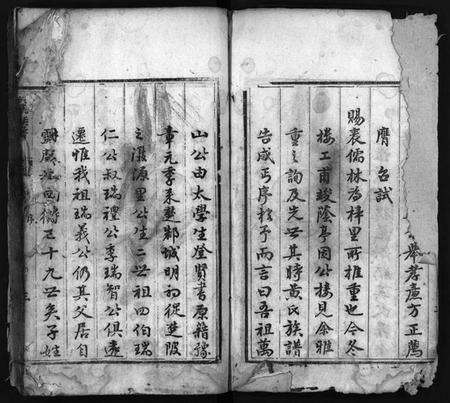 舉孝廉方正薦
膺 召試
賜裘儒林為梓里所推重也今冬
樓工甫竣蔭亭因公接見余雅
重之詢及先世其時黃氏族譜
告成丐序於予而言曰吾祖萬
山公由太學生登賢書原籍豫
章元季來楚鄂城明初從楚陂
之灄源里公生二世祖四伯瑞
仁公叔瑞禮公季瑞智公俱遠
遷惟我祖瑞義公仍其父居自
世矣子姓